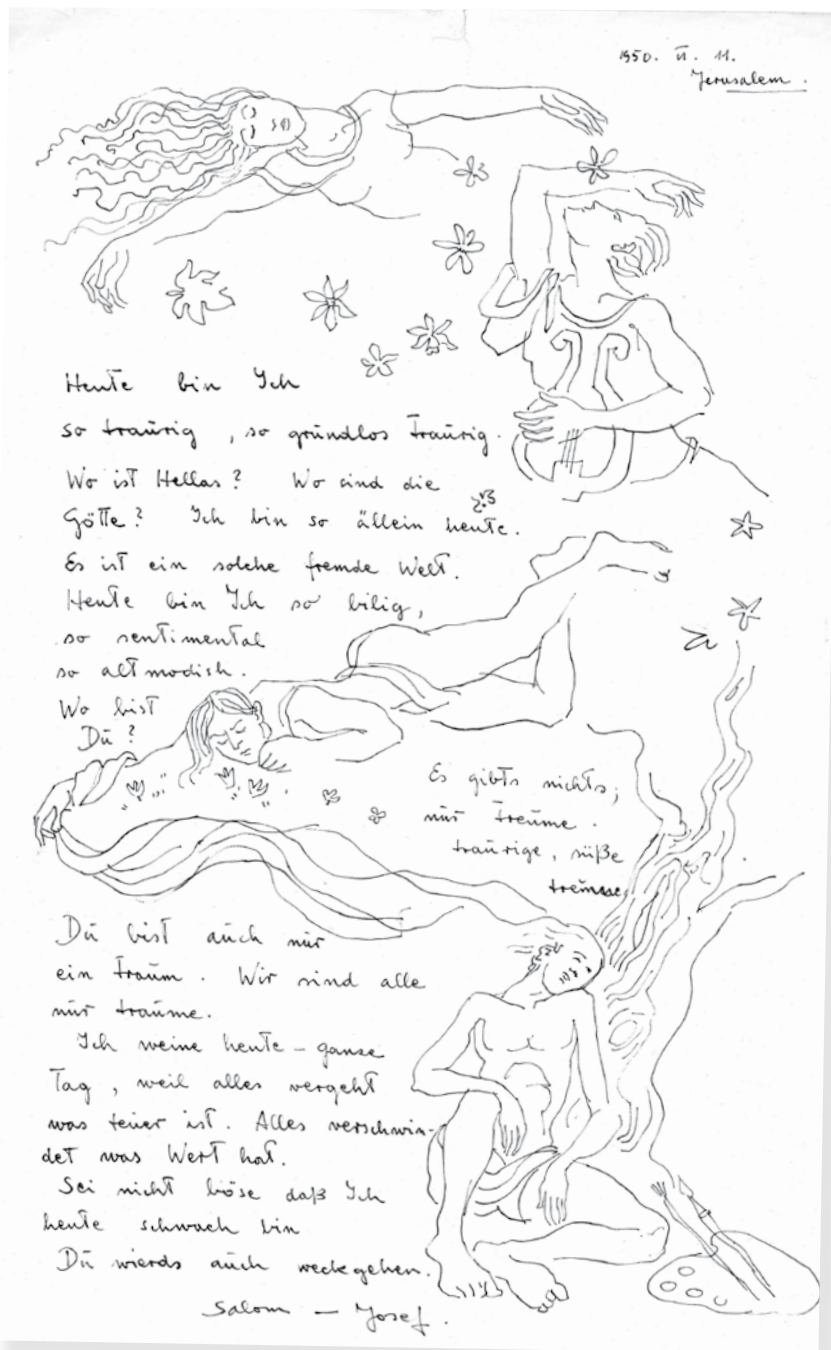 1950. II. 11.
Jerusalem.
Heute bin Ich
so traurig, so grundlos traurig.
Wo ist Hellas? Wo sind die
Götte? Ich bin so ällein heute.
Es ist ein solche fremde Welt.
Heute bin Ich so bilig,
so sentimental
so altmodish.
Wo bist
Du?
Es gibts nichts;
nur treume.
traurige, süße
treume
Du bist auch nur
ein Traum. Wir sind alle
nur traume.
Ich weine heute – ganze
Tag, weil alles vergeht
was teuer ist. Alles verschwin-
det was Wert hat.
Sei nicht böse daß Ich
heute schwach bin
Du wierds auch weckgehen.
Salom – Josef.